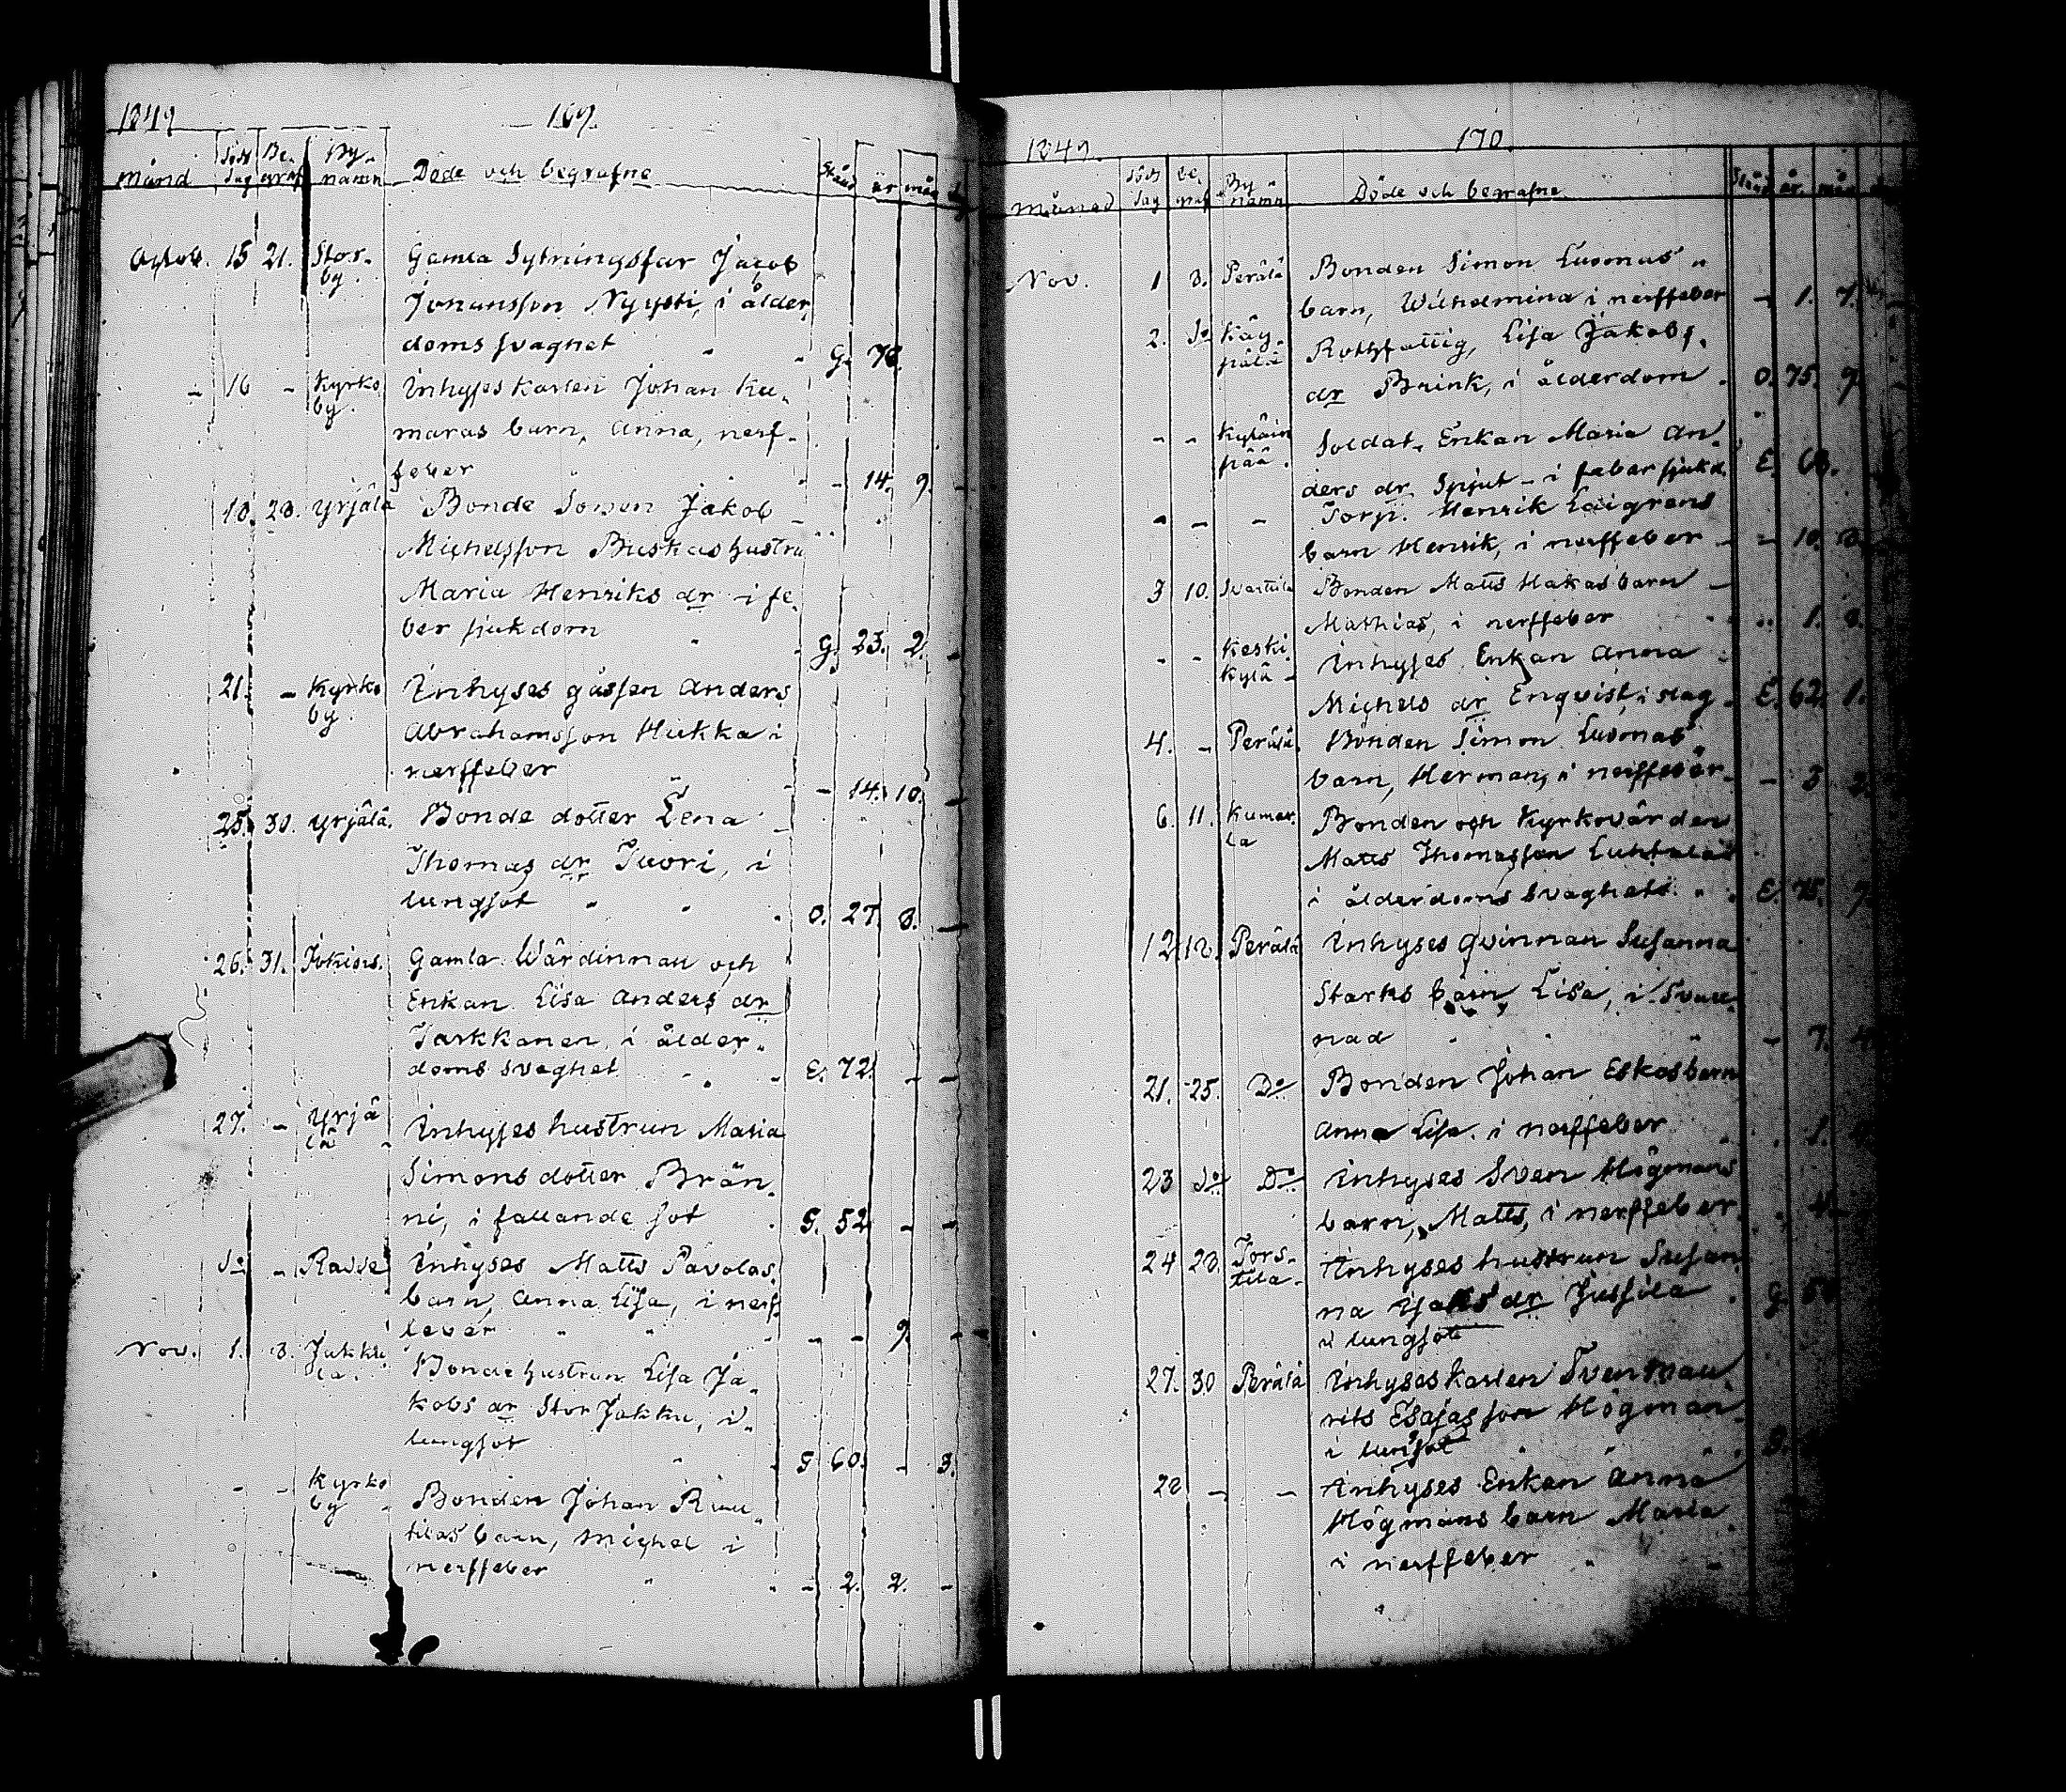 1849
169.
månad
död dag
Be. graf
By. namn
Döde och begrafne
Stånd
år
mån
Octob. 15 21. Stor. by.
Gamla Sytningsfar Jacob
Johansson Nyysti, i ålder
doms svaghet G. 78.
- 16 - Kyrko by.
Inhyses karlen Johan Ku,
maras barn, Anna, nerf-
feber - 14. 9. -
18. 23. Yrjälä
Bonde Sonen Jakob
Michelsson Buskas hustru
Maria Henriks dr i fe.
ber sjukdom G. 23. 2. -
21. - Kyrko by.
Inhyses gåssen Anders
Abrahamsson Hukka i
nerffeber - 14. 10. -
25. 30. Yrjälä.
Bonde dotter Lena
Thomas dr Tuori, i
lungsot O. 27. 8. -
26. 31. Jokiois.
Gamla Wärdinnan och
Enkan Lisa Anders dr
Tarkkanen, i ålder.
doms svaghet E. 72. - -
27. - Yrjä lä
Inhyses hustrun Maria
Simons dotter Brän.
ni, i fallande sot G. 52 - -
do -
Inhyses Matts Pavolas
barn, Anna Lisa, i nerf
feber - - 9. -
Nov. 1. 3. Jakku la.
Bonde hustrun Lisa Ja.
kobs dr Stor Jakku, i
lungsot G 60. - 3.
- - Kyrko by
Bonden Johan Ruu.
tilas barn, Michel i
nerffeber - 2. 2. -
1849.
170.
månad
död dag
be. graf
By namn
Döde och begrafne.
Stånd
år.
mån
Nov. 1 3. Perälä
Bonden Simon Luomas
barn, Wilhelmina i nerffeber - 1. 7.
2. do Käy. pälä
Rothfattig, Lisa Jakobs.
dr Brink, i ålderdom O. 75. 9.
- - Kyläin pää.
Soldat. Enkan Maria An.
ders dr Spjut - i feber sjukd. E. 68.
- - -
Torp. Henrik Laigrens
barn Henrik, i nerffeber - 10.
3 10. Svartila
Bonden Matts Hakas barn
Mathias, i nerffeber 1. 8.
- - Keski kylä -
Inhyses Enkan Anna
Michels dr Enqvist, i slag E. 62. 1.
4. - Perälä.
Bonden Simon Luomas
barn, Herman, i nerffeber - 3 2.
6. 11. Kumar. la
Bonden och Kyrkovärden
Matts Thomasson Luhtalas
i ålderdoms svaghet. E. 75. 7.
12 18. Perälä
Inhyses qvinnan Susanna
Starks barn Lisa, i Svull
nad - 7.
21. 25. Do
Bonden Johan Eskas barn
Anna Lisa. i nerffeber 1.
23 do Do
Inhyses Sven Högmans
barn, Matts, i nerffeber. 4
24 28. Tors. tila.
Inhyses hustrun Susan.
na dr Jussila G.
i lungsot
27. 30 Perälä
Inhyses karlen Sven Mau.
rits Esajasson Högman
i lungsot G.
28 - -
Inhyses Enkan Anna
Högmans barn Maria
i nerffeber